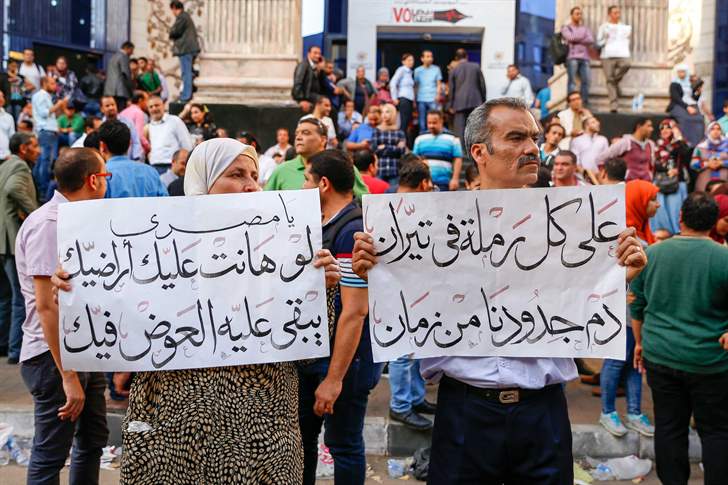 يا مصرى
لو هَانت عليك أراضيّك
يبقى عليه العوض فيّك
عَلى كل رمْلة فى تيرّان
دمْ جدودنا منْ زمَان